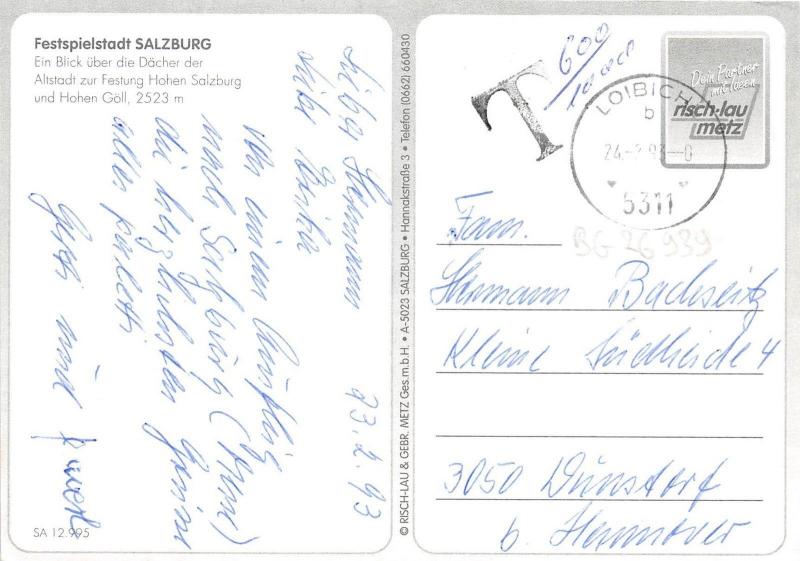 Festspielstadt SALZBURG
Ein Blick über die Dächer der
Altstadt zur Festung Hohen Salzburg
und Hohen Göll, 2523 m
Liebe Hermann 23.2.93
liebe Erika
Von einem Ausflug
nach Salzburg
die herzlichsten Grüsse
alles paletti
Gerti und
SA 12.995
© RISCH-LAU & GEBR. METZ Ges.m.b.H. • A-5023 SALZBURG • Hannakstraße 3 • Telefon (0662) 660430
T
600
Dein Partner
risch-lau
metz
LOIBICHL
b
24.-2.93-0
5311
BG 26939
Fam.
Hermann Bachseitz
Kleine Südheide 4
3050 Wunstorf
b. Hannover